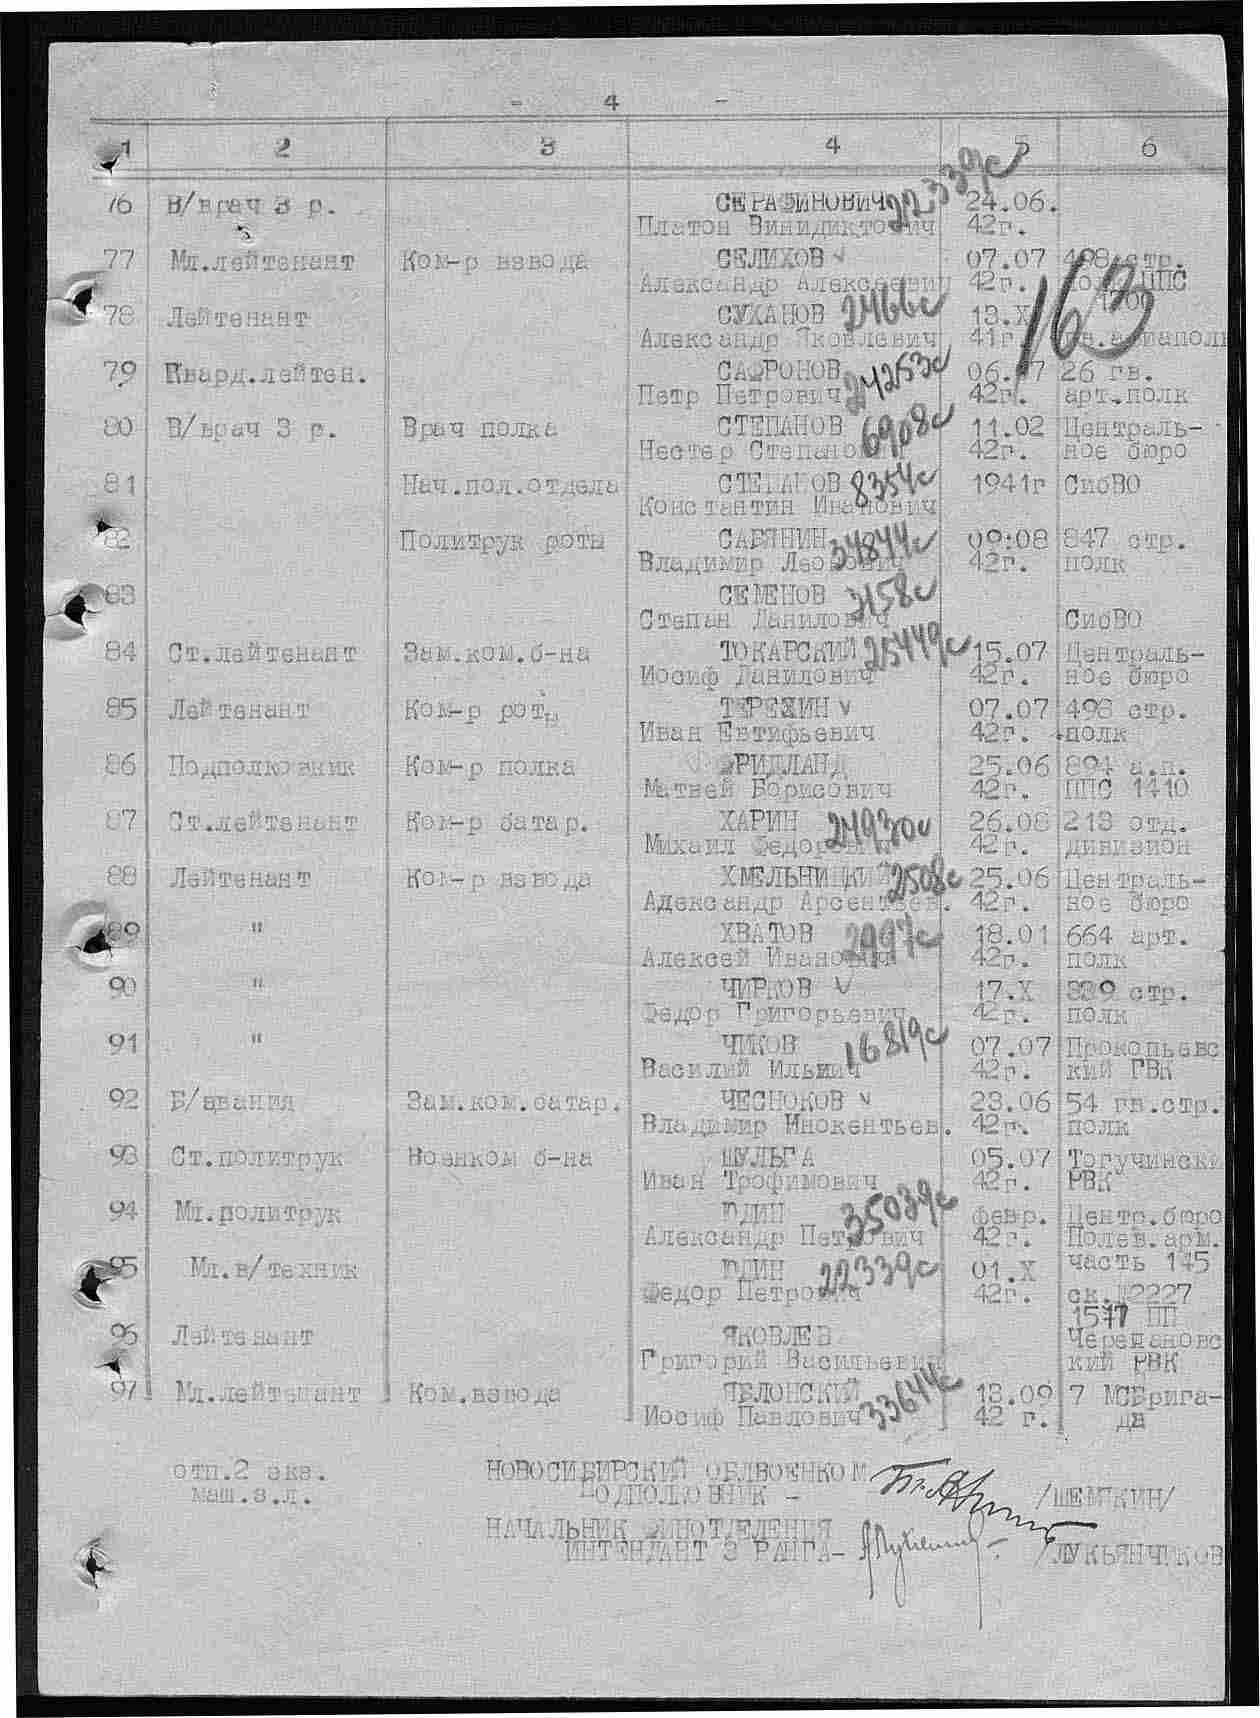 - 4 -
1 2 3 4 5 6
76 В/врач 3 р. СЕРАФИНОВИЧ 22339с 24.06.
Платон Винидиктович 42г.
77 Мл.лейтенант Ком-р взвода СЕЛИХОВ 07.07 498 стр.
Александр Алексеевич 42г. ППС
163
78 Лейтенант СУХАНОВ 2466с 13.X
Александр Яковлевич 41г.
79 Гвард.лейтен. САФРОНОВ 24253с 06.07 26 гв.
Петр Петрович 42г. арт.полк
80 В/врач 3 р. Врач полка СТЕПАНОВ 6908с 11.02 Централь-
Нестер 42г. ное бюро
81 Нач.пол.отдела СТЕПАНОВ 8354с 1941г СибВО
Константин Иванович
82 Политрук роты САВЯНИН 34844с 09:08 847 стр.
Владимир 42г. полк
83 СЕМЕНОВ 2158с
Степан Данилович СибВО
84 Ст.лейтенант Зам.ком.б-на ТОКАРСКИЙ 25449с 15.07 Централь-
Иосиф Данилович 42г. ное бюро
85 Лейтенант Ком-р роты ТЕРЕХИН 07.07 498 стр.
Иван Евтифьевич 42г. полк
86 Подполковник Ком-р полка ФРИДЛАНД 25.06 894 а.п.
Матвей Борисович 42г. ППС 1410
87 Ст.лейтенант Ком-р батар. ХАРИН 24930с 26.08 213 отд.
Михаил Федорович 42г. дивизион
88 Лейтенант Ком-р взвода ХМЕЛЬНИЦКИЙ 2508с 25.06 Централь-
Александр Арсентьев. 42г. ное бюро
89 " ХВАТОВ 2997с 18.01 664 арт.
Алексей Иванович 42г. полк
90 " ЧИРКОВ 17.X 839 стр.
Федор Григорьевич 42г. полк
91 " ЧИКОВ 16819с 07.07 Прокопьевс
Василий Ильич 42г. кий ГВК
92 Б/звания Зам.ком.батар. ЧЕСНОКОВ 23.06 54 гв.стр.
Владимир Инокентьев. 42г. полк
93 Ст.политрук Военком б-на ШУЛЬГА 05.07 Тогучински
Иван Трофимович 42г. РВК
94 Мл.политрук ЮДИН 35039с февр. Центр.бюро
Александр Петрович 42г. Полев.арм.
95 Мл.в/техник ЮДИН 22339с 01.X часть 145
Федор Петрович 42г. ск.№2227
1577 ПП
96 Лейтенант ЯКОВЛЕВ Черепановс
Григорий Васильевич кий РВК
97 Мл.лейтенант Ком.взвода ЯБЛОНСКИЙ 33644с 13.09 7 МСБрига-
Иосиф Павлович 42 г. да
отп.2 экз. НОВОСИБИРСКИЙ ОБЛВОЕНКОМ
маш.з.л. ПОДПОЛКОВНИК - /ШЕМЯКИН/
НАЧАЛЬНИК ФИНОТДЕЛЕНИЯ
ИНТЕНДАНТ 3 РАНГА- /ЛУКЬЯНЧИКОВ